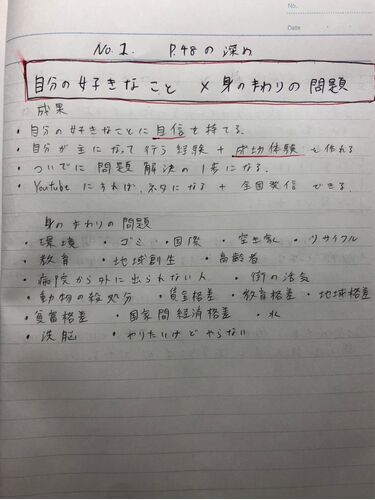 No.
Date
No.1. P.48の深め
自分の好きなこと × 身のまわりの問題
成果
・自分の好きなことに自信を持てる。
・自分が主になって行う経験 + 成功体験を作れる
・ついでに問題解決の1歩になる。
・Youtubeにすれば、ネタになる + 全国発信できる。
身のまわりの問題
・環境 ・ゴミ ・国際 ・空き家 ・リサイクル
・教育 ・地域創生 ・高齢者
・病院から外に出られない人 ・街の活気
・動物の殺処分 ・賃金格差 ・教育格差 ・地域格差
・貧富格差 ・国家間経済格差 ・水
・洗脳 ・やりたいけどやらない